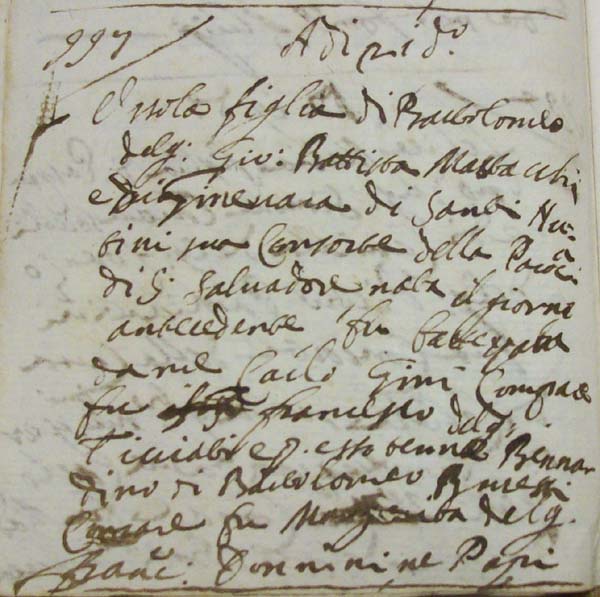 997 Adi 21 do.
Orsola figlia di Bartolomeo
del q: Gio: Battista Mattacchi
e di Ginevara di Santi Nu-
tini sua Consorte della Paroa
di S: Salvadore nata il giorno
antecedente fu battezzata
da me Carlo Gini Compare
fu Francesco del q.
e p. esso tenne Bennar
dino di Bartolomeo
Comare fu Margherita del q.
Papi